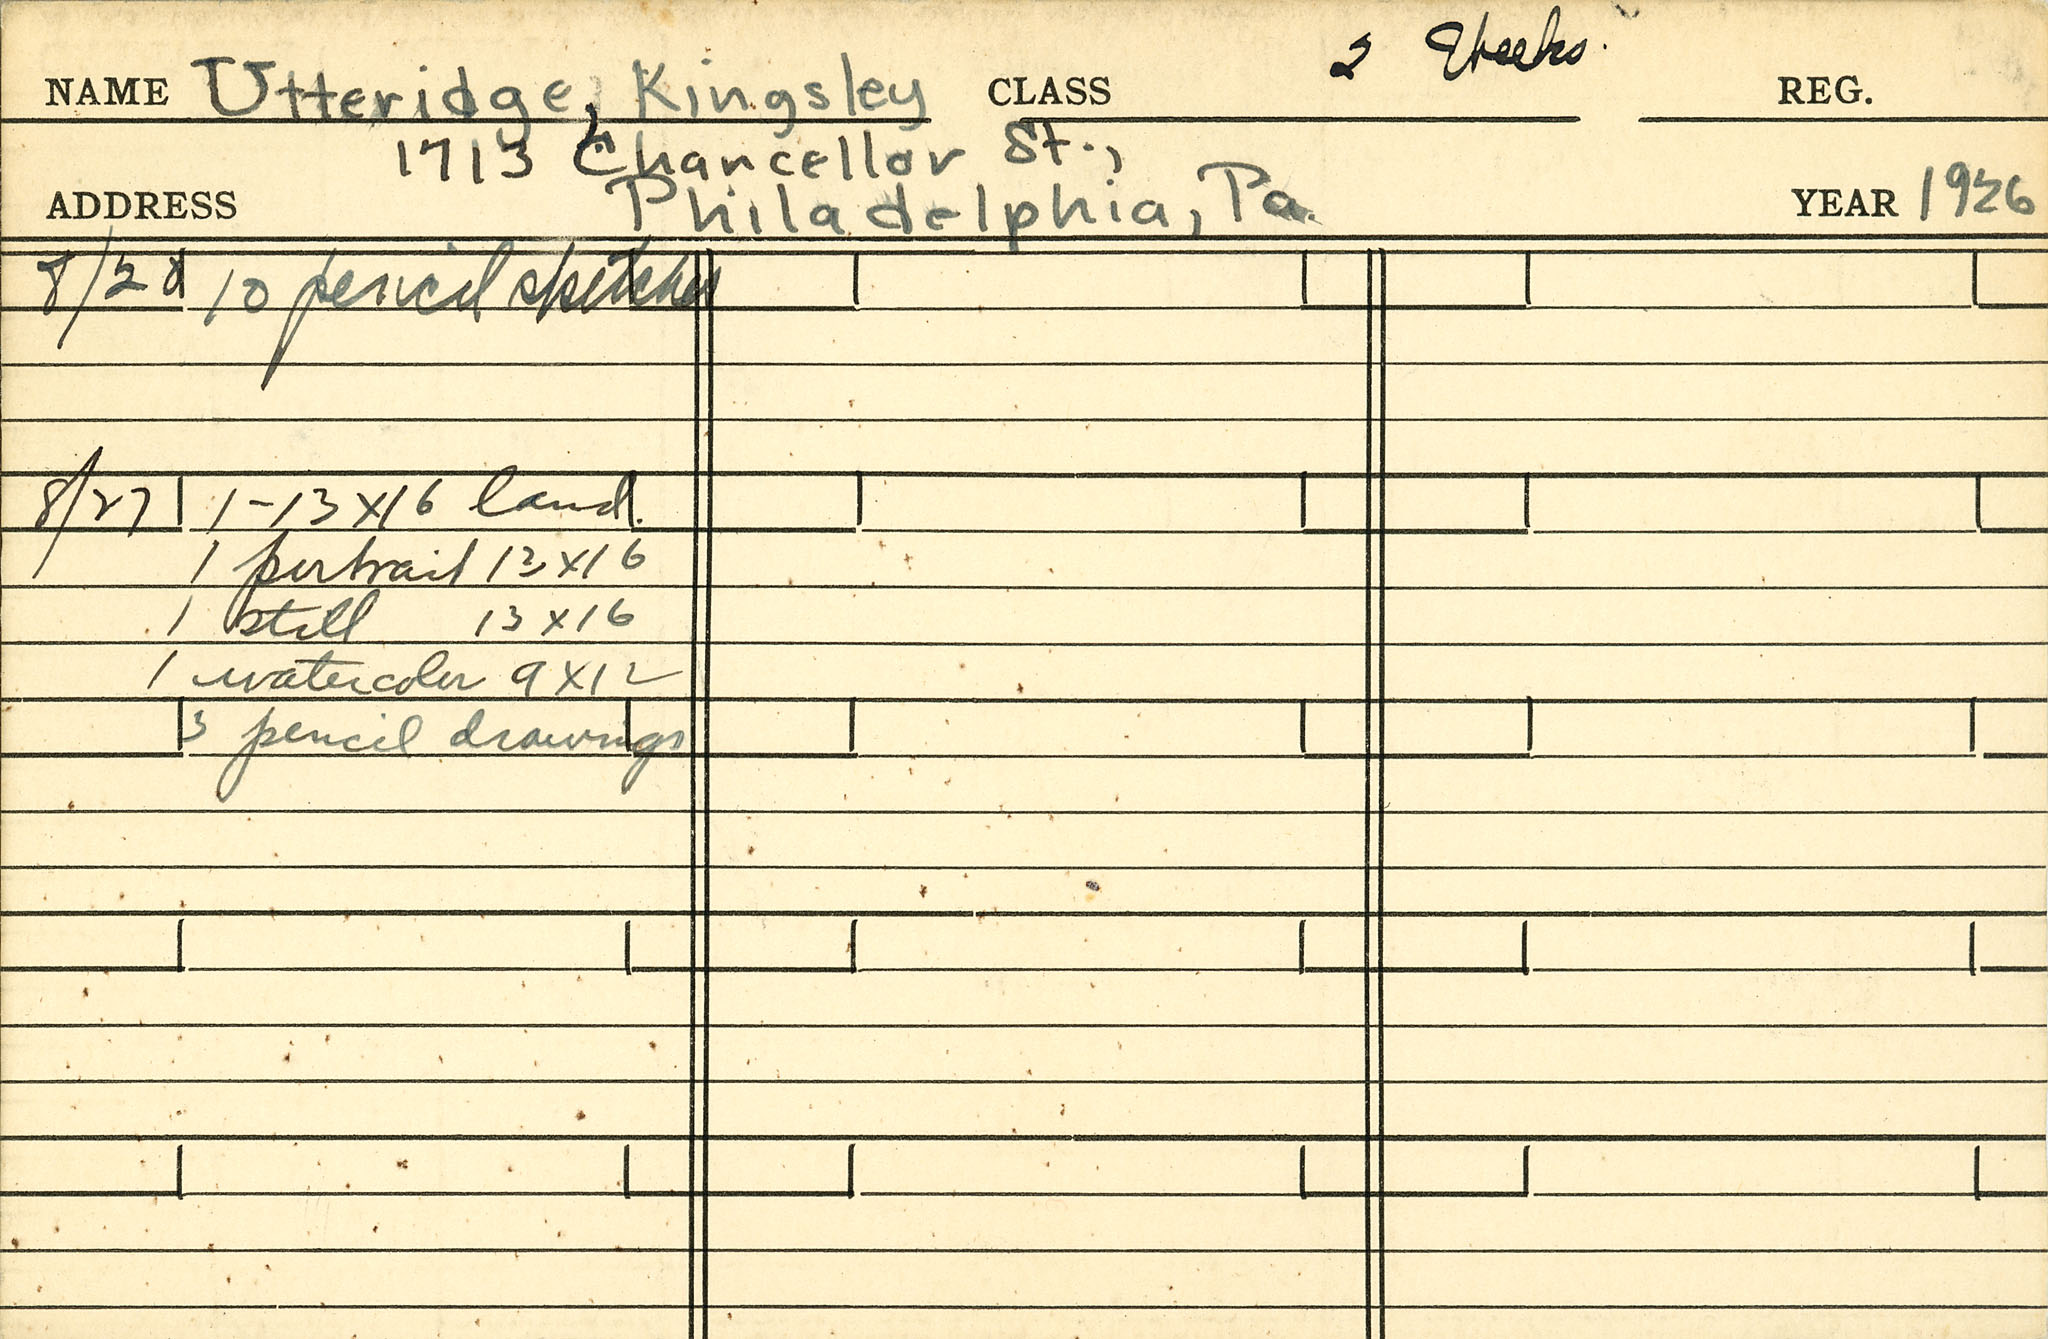 2 Weeks.
NAME Utteridge, Kingsley CLASS REG.
1713 Chancellor St.,
ADDRESS Philadelphia, Pa. YEAR 1926
8/28 10 pencil sketches
8/27 1-13x16 land.
1 portrait 13x16
1 still 13x16
1 watercolor 9x12
3 pencil drawings